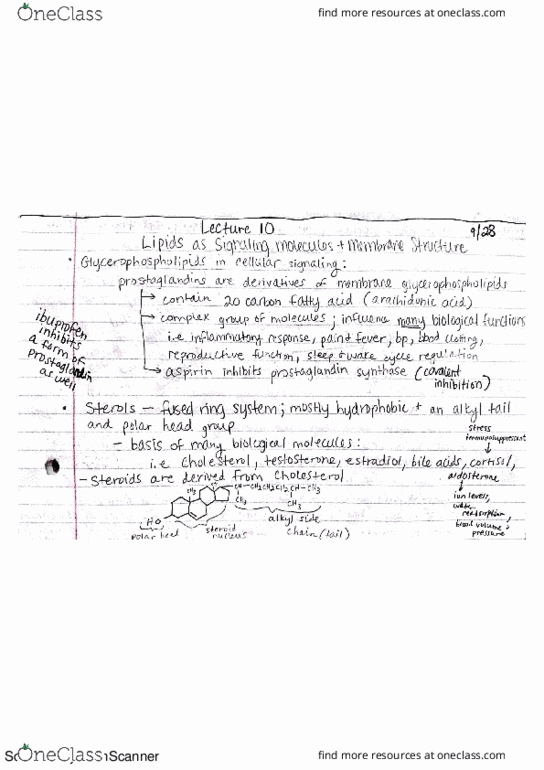 OneClass
find more resources at oneclass.com
Lecture 10
9/28
Lipids as Signaling molecules + Membrane Structure
• Glycerophospholipids in cellular signaling:
prostaglandins are derivatives of membrane glycerophospholipids
→ contain 20 carbon fatty acid (arachidonic acid)
→ complex group of molecules; influence many biological functions
i.e inflammatory response, pain + fever, bp, blood clotting,
reproductive function, sleep + wake cycle regulation
→ aspirin inhibits prostaglandin synthase (covalent
inhibition)
ibuprofen
inhibits
a form of
prostaglandin
as well
• Sterols – fused ring system; mostly hydrophobic + an alkyl tail
and polar head group
– basis of many biological molecules:
i.e cholesterol, testosterone, estradiol, bile acids, cortisol,
stress
immunosuppressant
aldosterone
ion levels,
water
reabsorption,
blood volume +
pressure
– Steroids are derived from cholesterol
CH3
CH–CH2CH2CH2CH–CH3
CH3
CH3
HO
polar head
steroid
nucleus
alkyl side
chain (tail)
OneClass
Scanner
find more resources at oneclass.com